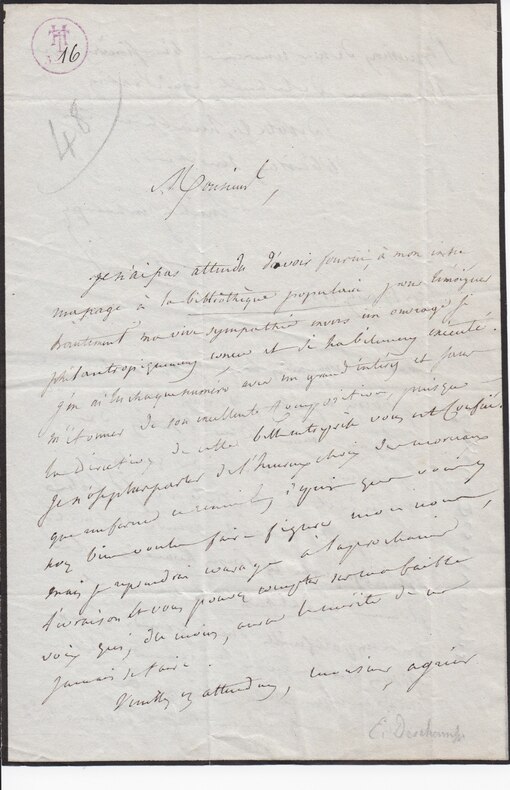 16
48
Monsieur,
je n'ai pas attendu d'avoir fourni à mon
ma page à la bibliothèque populaire, pour témoigner
hautement ma vive sympathie envers un ouvrage si
philantropiquement conçu et si habilement exécuté.
J'en ai lu chaque numéro avec un grand intérêt et sans
m'étonner de son excellente composition, puisque
la Direction de cette bibliothèque vous est confiée.
Je n'ose plus parler de l'heureux choix des morceaux
que renferme depuis que vous y
avez bien voulu faire figurer mon nom,
mais je reprendrai courage à la prochaine
livraison et vous pouvez compter sur ma faible
voix qui, du moins, aura le mérite de ne
jamais se taire.
Veuillez en attendant, monsieur, agréer
E. Deschamps